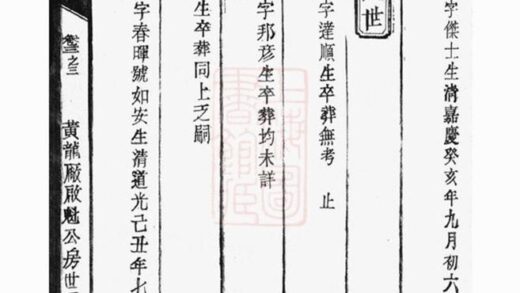 字傑士生清嘉慶癸亥年九月初六
世
字達順生卒葬無考 止
字邦彥生卒葬均未詳
生卒葬同上乏嗣
字春暉號如安生清道光己丑年七
卷之三 黃龍廠啟魁公房世